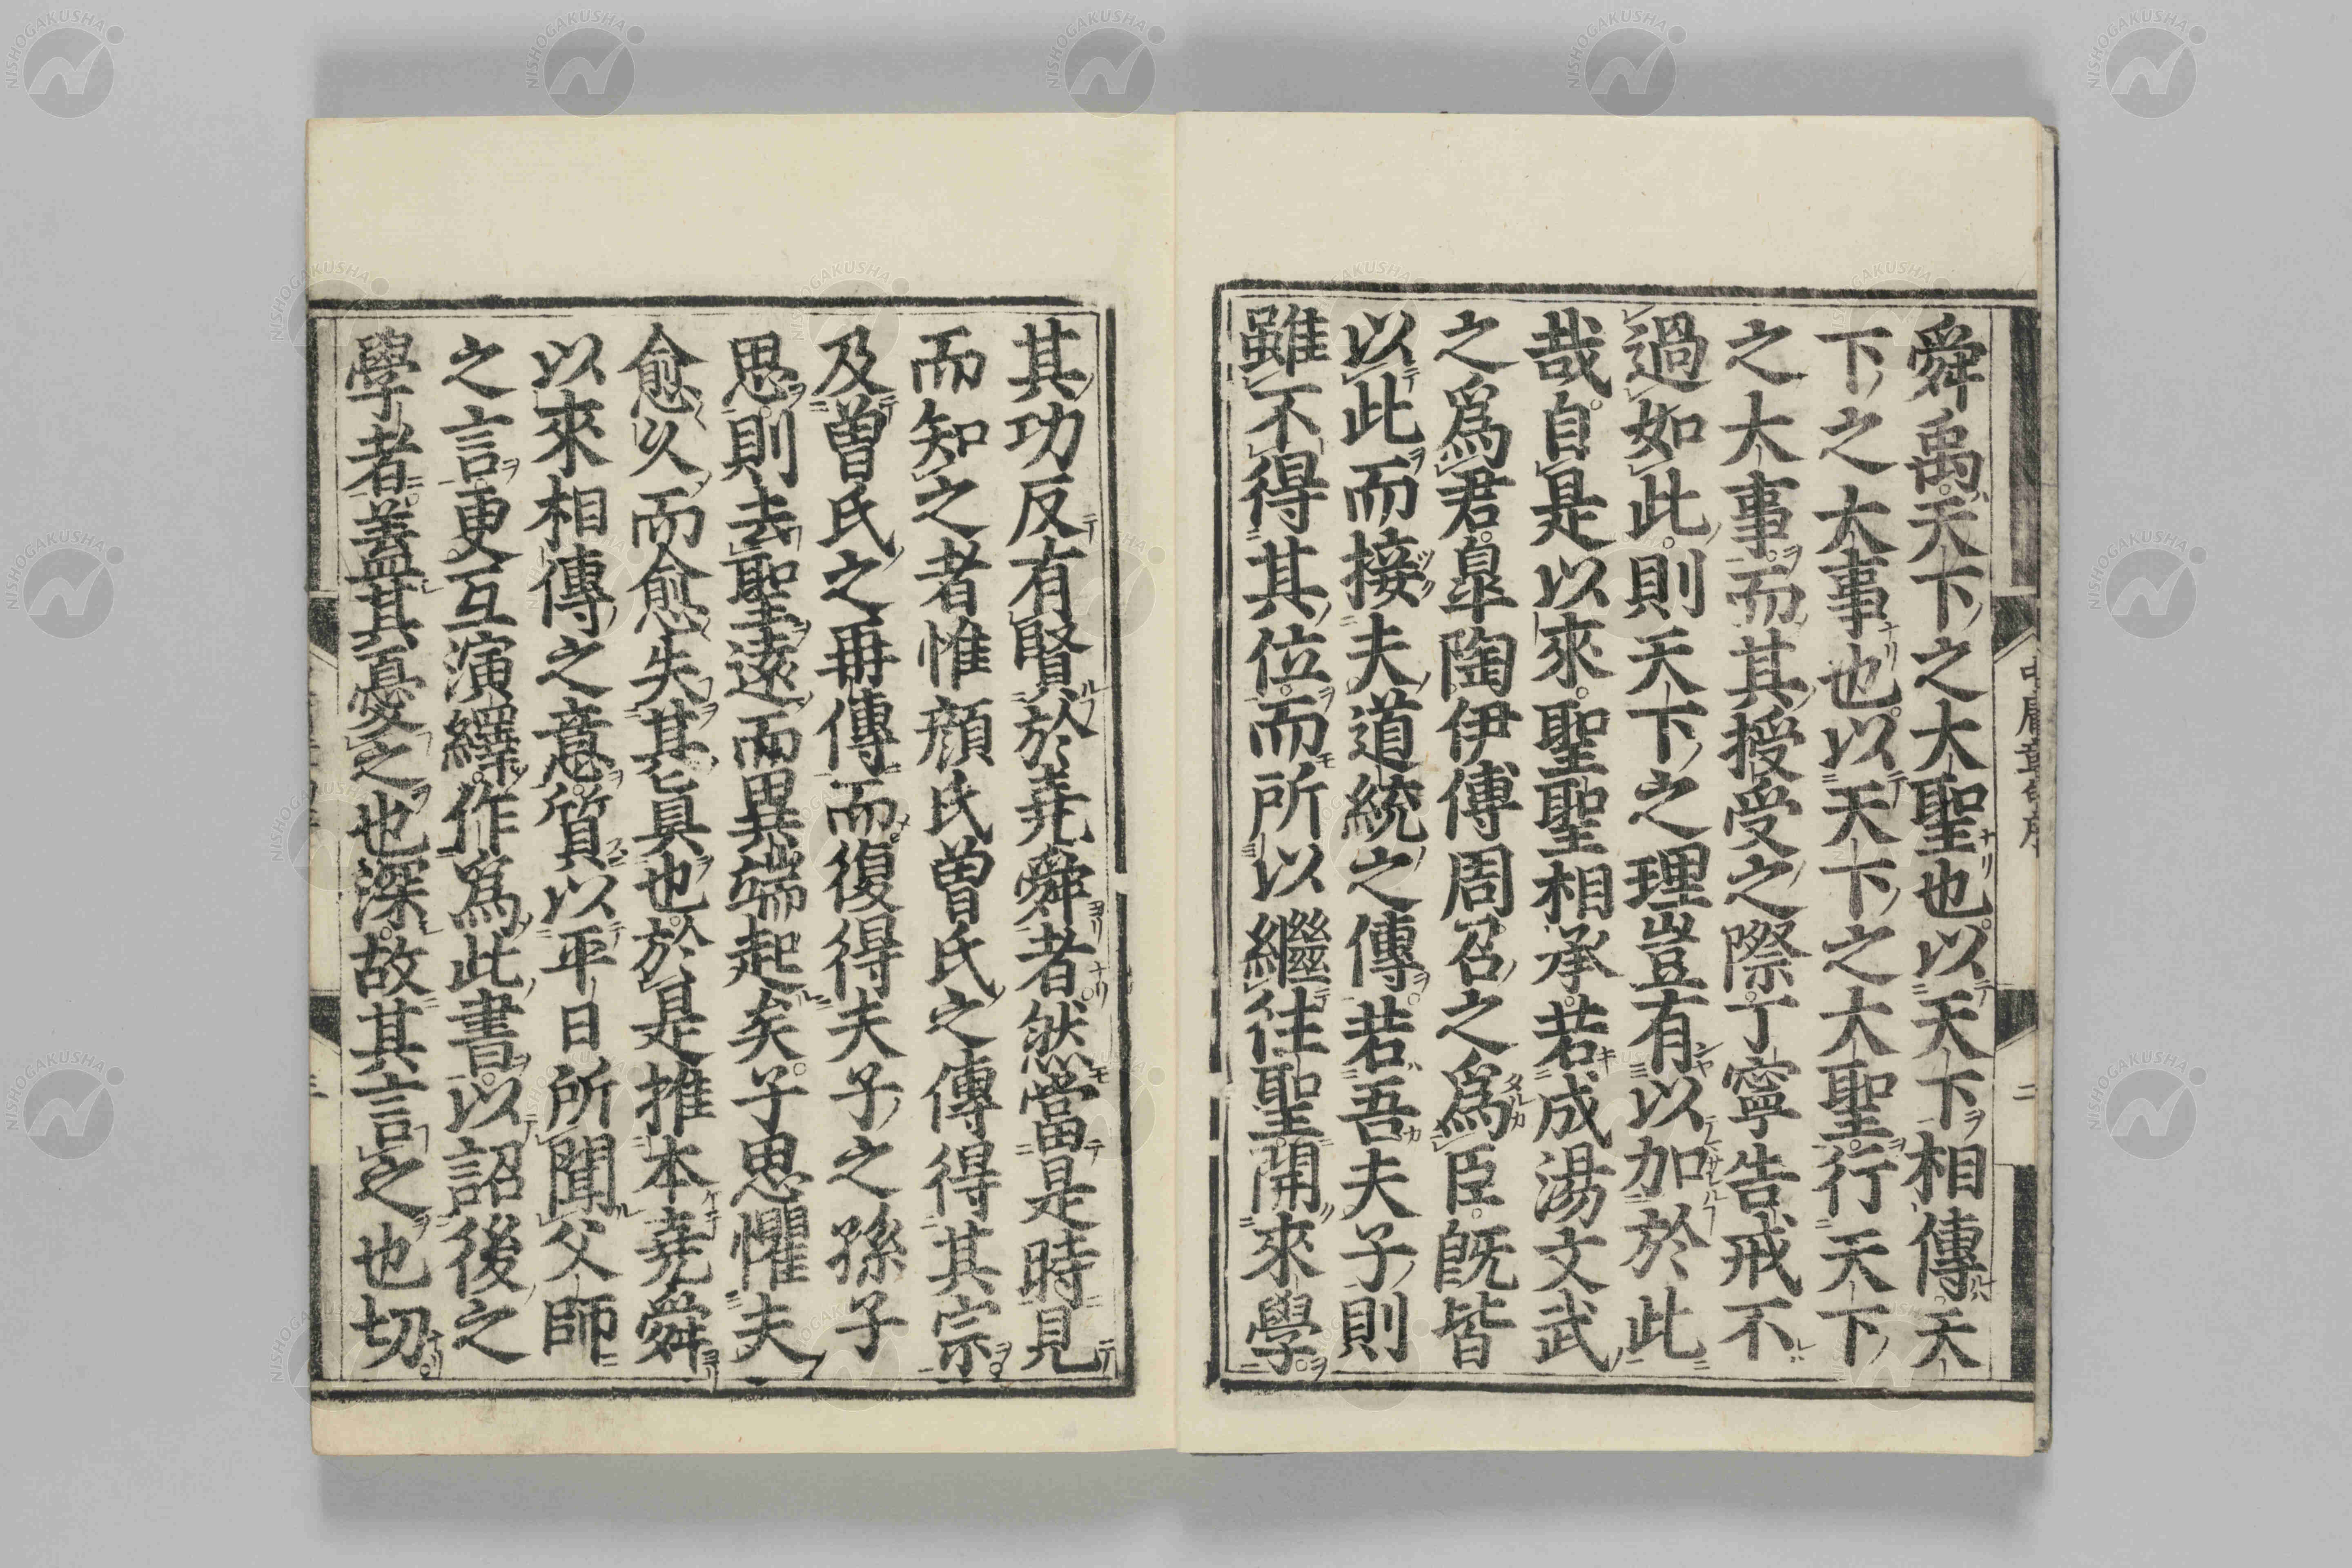 舜禹天下之大聖也以天下相傳天
下之大事也以天下之大聖行天下
之大事而其授受之際丁寧告戒不
過如此則天下之理豈有以加於此
哉自是以來聖聖相承若成湯文武
之爲君皐陶伊傅周召之爲臣既皆
以此而接夫道統之傳若吾夫子則
雖不得其位而所以繼往聖開來學
其功反有賢於堯舜者然當是時見
而知之者惟顏氏曽氏之傳得其宗
及曽氏之再傳而復得夫子之孫子
思則去聖遠而異端起矣子思懼夫
愈久而愈失其眞也於是推本堯舜
以來相傳之意質以平日所聞父師
之言更互演繹作爲此書以詔後之
學者蓋其憂之也深故其言之也切
NISHOGAKUSHA